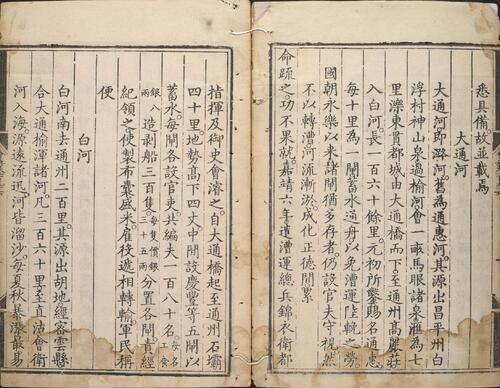 悉具備故並載焉
大通河
大通河即潞河舊為通惠河其源出昌平州白
浮村神山泉過榆河會一畝馬眼諸泉滙為七
里濼東貫都城由大通橋而下至通州高麗莊
入白河長一百六十餘里元初所鑿賜名通惠
每十里為一閘蓄水通舟以免漕運陸輓之勞
國朝永樂以來諸閘猶多存者仍設官夫守視然
不以轉漕河流漸淤成化正德間累
命疏之功不果就嘉靖六年遣漕運總兵錦衣衛都
指揮及御史會濬之自大通橋起至通州石壩
四十里地勢高下四丈中間設慶豐等五閘以
蓄水每閘各設官吏共編夫一百八十名每名工食
銀八兩造剥船三百隻每隻價銀三十五兩分置各閘責經
紀領之使製布囊盛米雇役遞相轉輸軍民稱
便
白河
白河南去通州二百里其源出胡地經密雲縣
合大通榆渾諸河凡三百六十里至直沽會衛
河入海源遠流迅河皆溜沙每夏秋暴漲最易